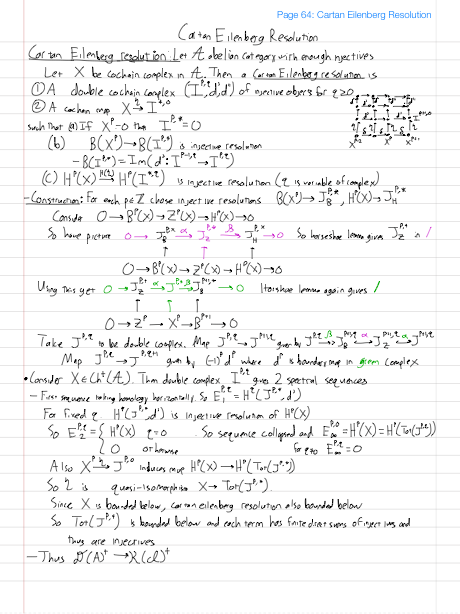 Page 64: Cartan Eilenberg Resolution
Cartan Eilenberg Resolution
Cartan Eilenberg resolution: Let A abelian category with enough injectives
Let X be cochain complex in A. Then a Cartan Eilenberg resolution is
① A double cochain complex (I^{p,q}, d', d'') of injective objects for q≥0
② A cochain map X →^η I^{*,0}
such that (a) If X^p=0 then I^{p,*}=0
(b) B(X^p)→B(I^{p,*}) is injective resolution
- B(I^{p,*}) = Im(d': I^{p-1,*}→I^{p,*})
(c) H^p(X) →^{H(η)} H^p(I^{*,q}) is injective resolution (q is variable of complex)
- Construction: For each p∈Z choose injective resolutions B(X^p)→J_B^{p,*}, H^p(X)→J_H^{p,*}
Consider 0→B^p(X)→Z^p(X)→H^p(X)→0
So have picture 0→J_B^{p,*} →^α J_Z^{p,*} →^β J_H^{p,*}→0 So horseshoe lemma gives J_Z^{p,*} in /
0→B^p(X)→Z^p(X)→H^p(X)→0
Using this get 0→J_Z^{p,*} →^α J^{p,*} →^β J_B^{p+1,*}→0 Horseshoe lemma again gives /
0→Z^p→X^p→B^{p+1}→0
Take J^{p,q} to be double complex. Map J^{p,q}→J^{p+1,q} given by J^{p,q} →^β J_B^{p+1,q} →^α J_Z^{p+1,q} →^α J^{p+1,q}
Map J^{p,q}→J^{p,q+1} given by (-1)^p d^p where d^p is boundary map in green complex
• Consider X∈Ch^+(A). Then double complex I^{p,q} gives 2 spectral sequences
- First sequence taking homology horizontally. So E_1^{p,q} = H^q(J^{p,*}, d')
For fixed q H^q(J^{p,*}, d') is injective resolution of H^p(X)
So E_2^{p,q} = { H^p(X) q=0 . So sequence collapses and E_∞^{p,0} = H^p(X) = H^p(Tot(J^{p,q}))
0 otherwise for q≠0 E_∞^{p,q}=0
Also X^p →^η J^{p,0} induces map H^p(X)→H^p(Tot(J^{p,*}))
So η is quasi-isomorphism X→Tot(J^{p,*})
Since X is bounded below, cartan eilenberg resolution also bounded below
So Tot(J^{p,*}) is bounded below and each term has finite direct sums of injectives and
thus are injectives
- Thus D(A)^+ → K(I)^+